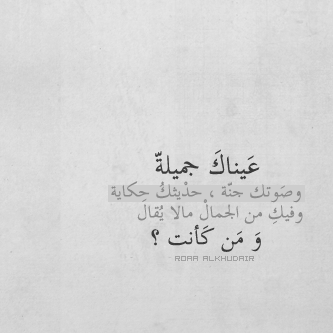 عَيناكَ جميلةّ
وصَوتك جنّة ، حدْيثكُ حِكاية
وفيكِ من الجمالْ مالا يُقالَ
وَ مَن كَأنت ؟
ROAA ALKHUDAIR